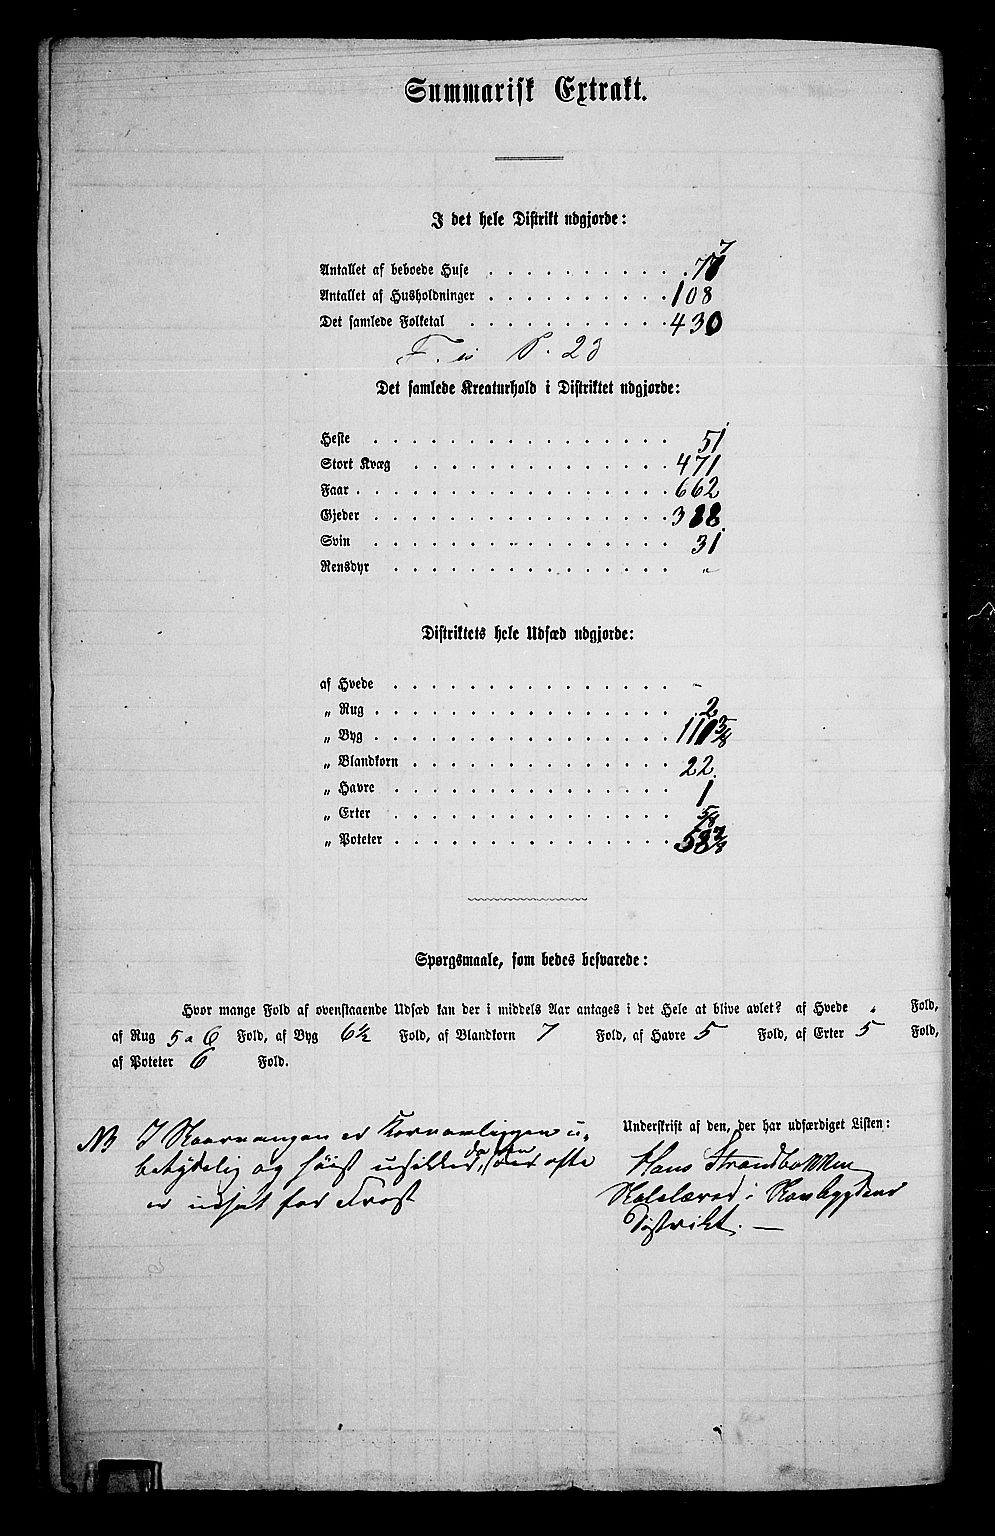 Summarisk Extrakt.
I det hele Distrikt udgjorde:
7
Antallet af beboede Huse . . . . . . . . . . . 77
Antallet af Husholdninger . . . . . . . . . . 108
Det samlede Folketal . . . . . . . . . . . 430
F. is P. 23
Det samlede Kreaturhold i Distriktet udgjorde:
Heste . . . . . . . . . . . . . . . 51
Stort Kvæg . . . . . . . . . . . . . 471
Faar . . . . . . . . . . . . . . . . 662
Gjeder . . . . . . . . . . . . . . . 388
Svin . . . . . . . . . . . . . . . 31
Rensdyr . . . . . . . . . . . . . . „
Distriktets hele Udsæd udgjorde:
af Hvede . . . . . . . . . . . . . . -
„ Rug . . . . . . . . . . . . . . . 2
„ Byg . . . . . . . . . . . . . . . 110 3/8
„ Blandkorn . . . . . . . . . . . . . 22
„ Havre . . . . . . . . . . . . . . 1
„ Erter . . . . . . . . . . . . . . 5/8
„ Poteter . . . . . . . . . . . . . . 582/8
Spørgsmaale, som bedes besvarede:
Hvor mange Fold af ovenstaaende Udsæd kan der i middels Aar antages i det Hele at blive avlet? af Hvede „ Fold,
af Rug 5 a 6 Fold, af Byg 6½ Fold, af Blandkorn 7 Fold, af Havre 5 Fold, af Erter 5 Fold,
af Poteter 6 Fold.
Underskrift af den, der har udfærdiget Listen:
NB I er Kornavlingen u-
betydelig og høist usikker, da den ofte
er udsat for Frost
Hans Strandbakken
Skolelærer i
Distrikt. —